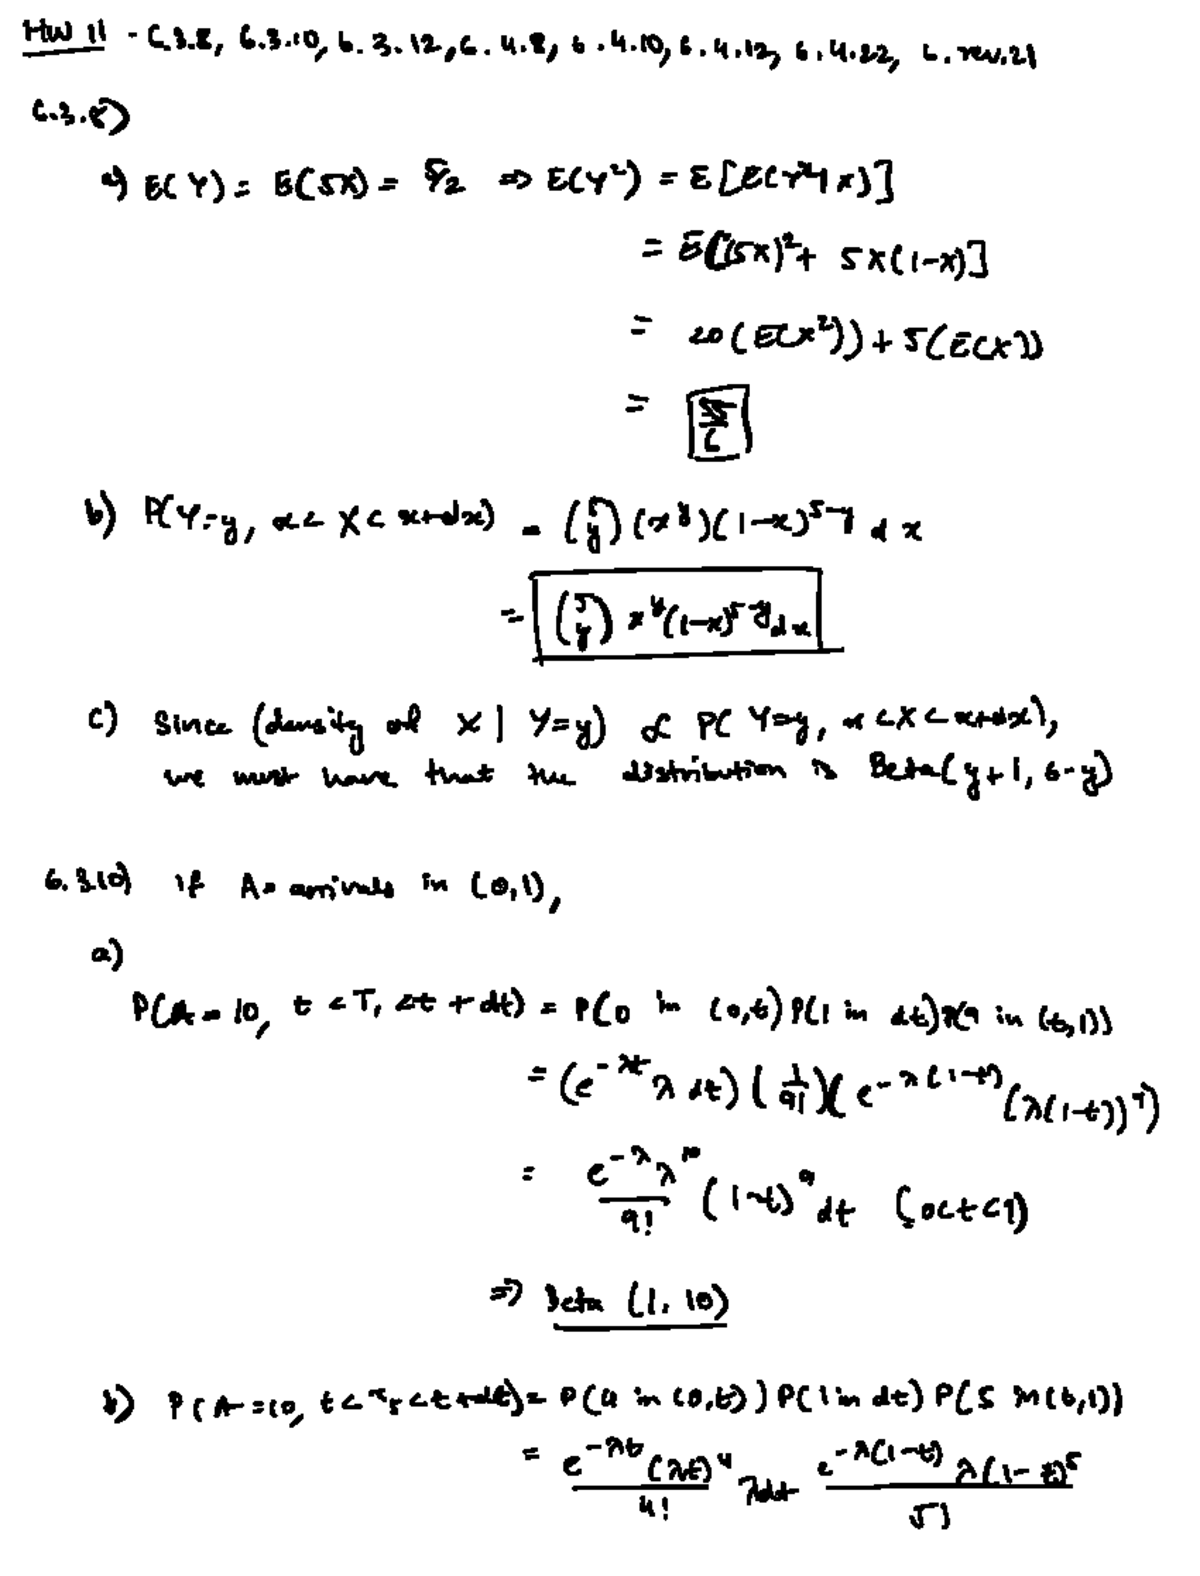 HW 11 - 6.3.8, 6.3.10, 6.3.12, 6.4.8, 6.4.10, 6.4.12, 6.4.22, 6.rev.21
6.3.8)
a) E(Y) = E(5X) = 5/2 ⇒ E(Y²) = E[E(Y²|X)]
= E[(5X)² + 5X(1-X)]
= 20(E(X²)) + 5(E(X))
= 55/6
b) P(Y=y, x < X < x+dx) = (5 y)(x^y)(1-x)^{5-y} dx
= (5 y) x^y (1-x)^{5-y} dx
c) Since (density of X | Y=y) ∝ P(Y=y, x < X < x+dx),
we must have that the distribution is Beta(y+1, 6-y)
6.3.10) if A = arrivals in (0,1),
a)
P(A = 10, t < T₁ < t + dt) = P(0 in (0,t)) P(1 in dt) P(9 in (t,1))
= (e^{-λt} λ dt) (1/9!) (e^{-λ(1-t)} (λ(1-t))^9)
= e^{-λ} λ^{10} / 9! (1-t)^9 dt (0<t<1)
⇒ Beta (1, 10)
b) P(A = 10, t < T₅ < t+dt) = P(4 in (0,t)) P(1 in dt) P(5 in (t,1))
= e^{-λt} (λt)^4 / 4! λdt e^{-λ(1-t)} λ(1-t)^5 / 5!